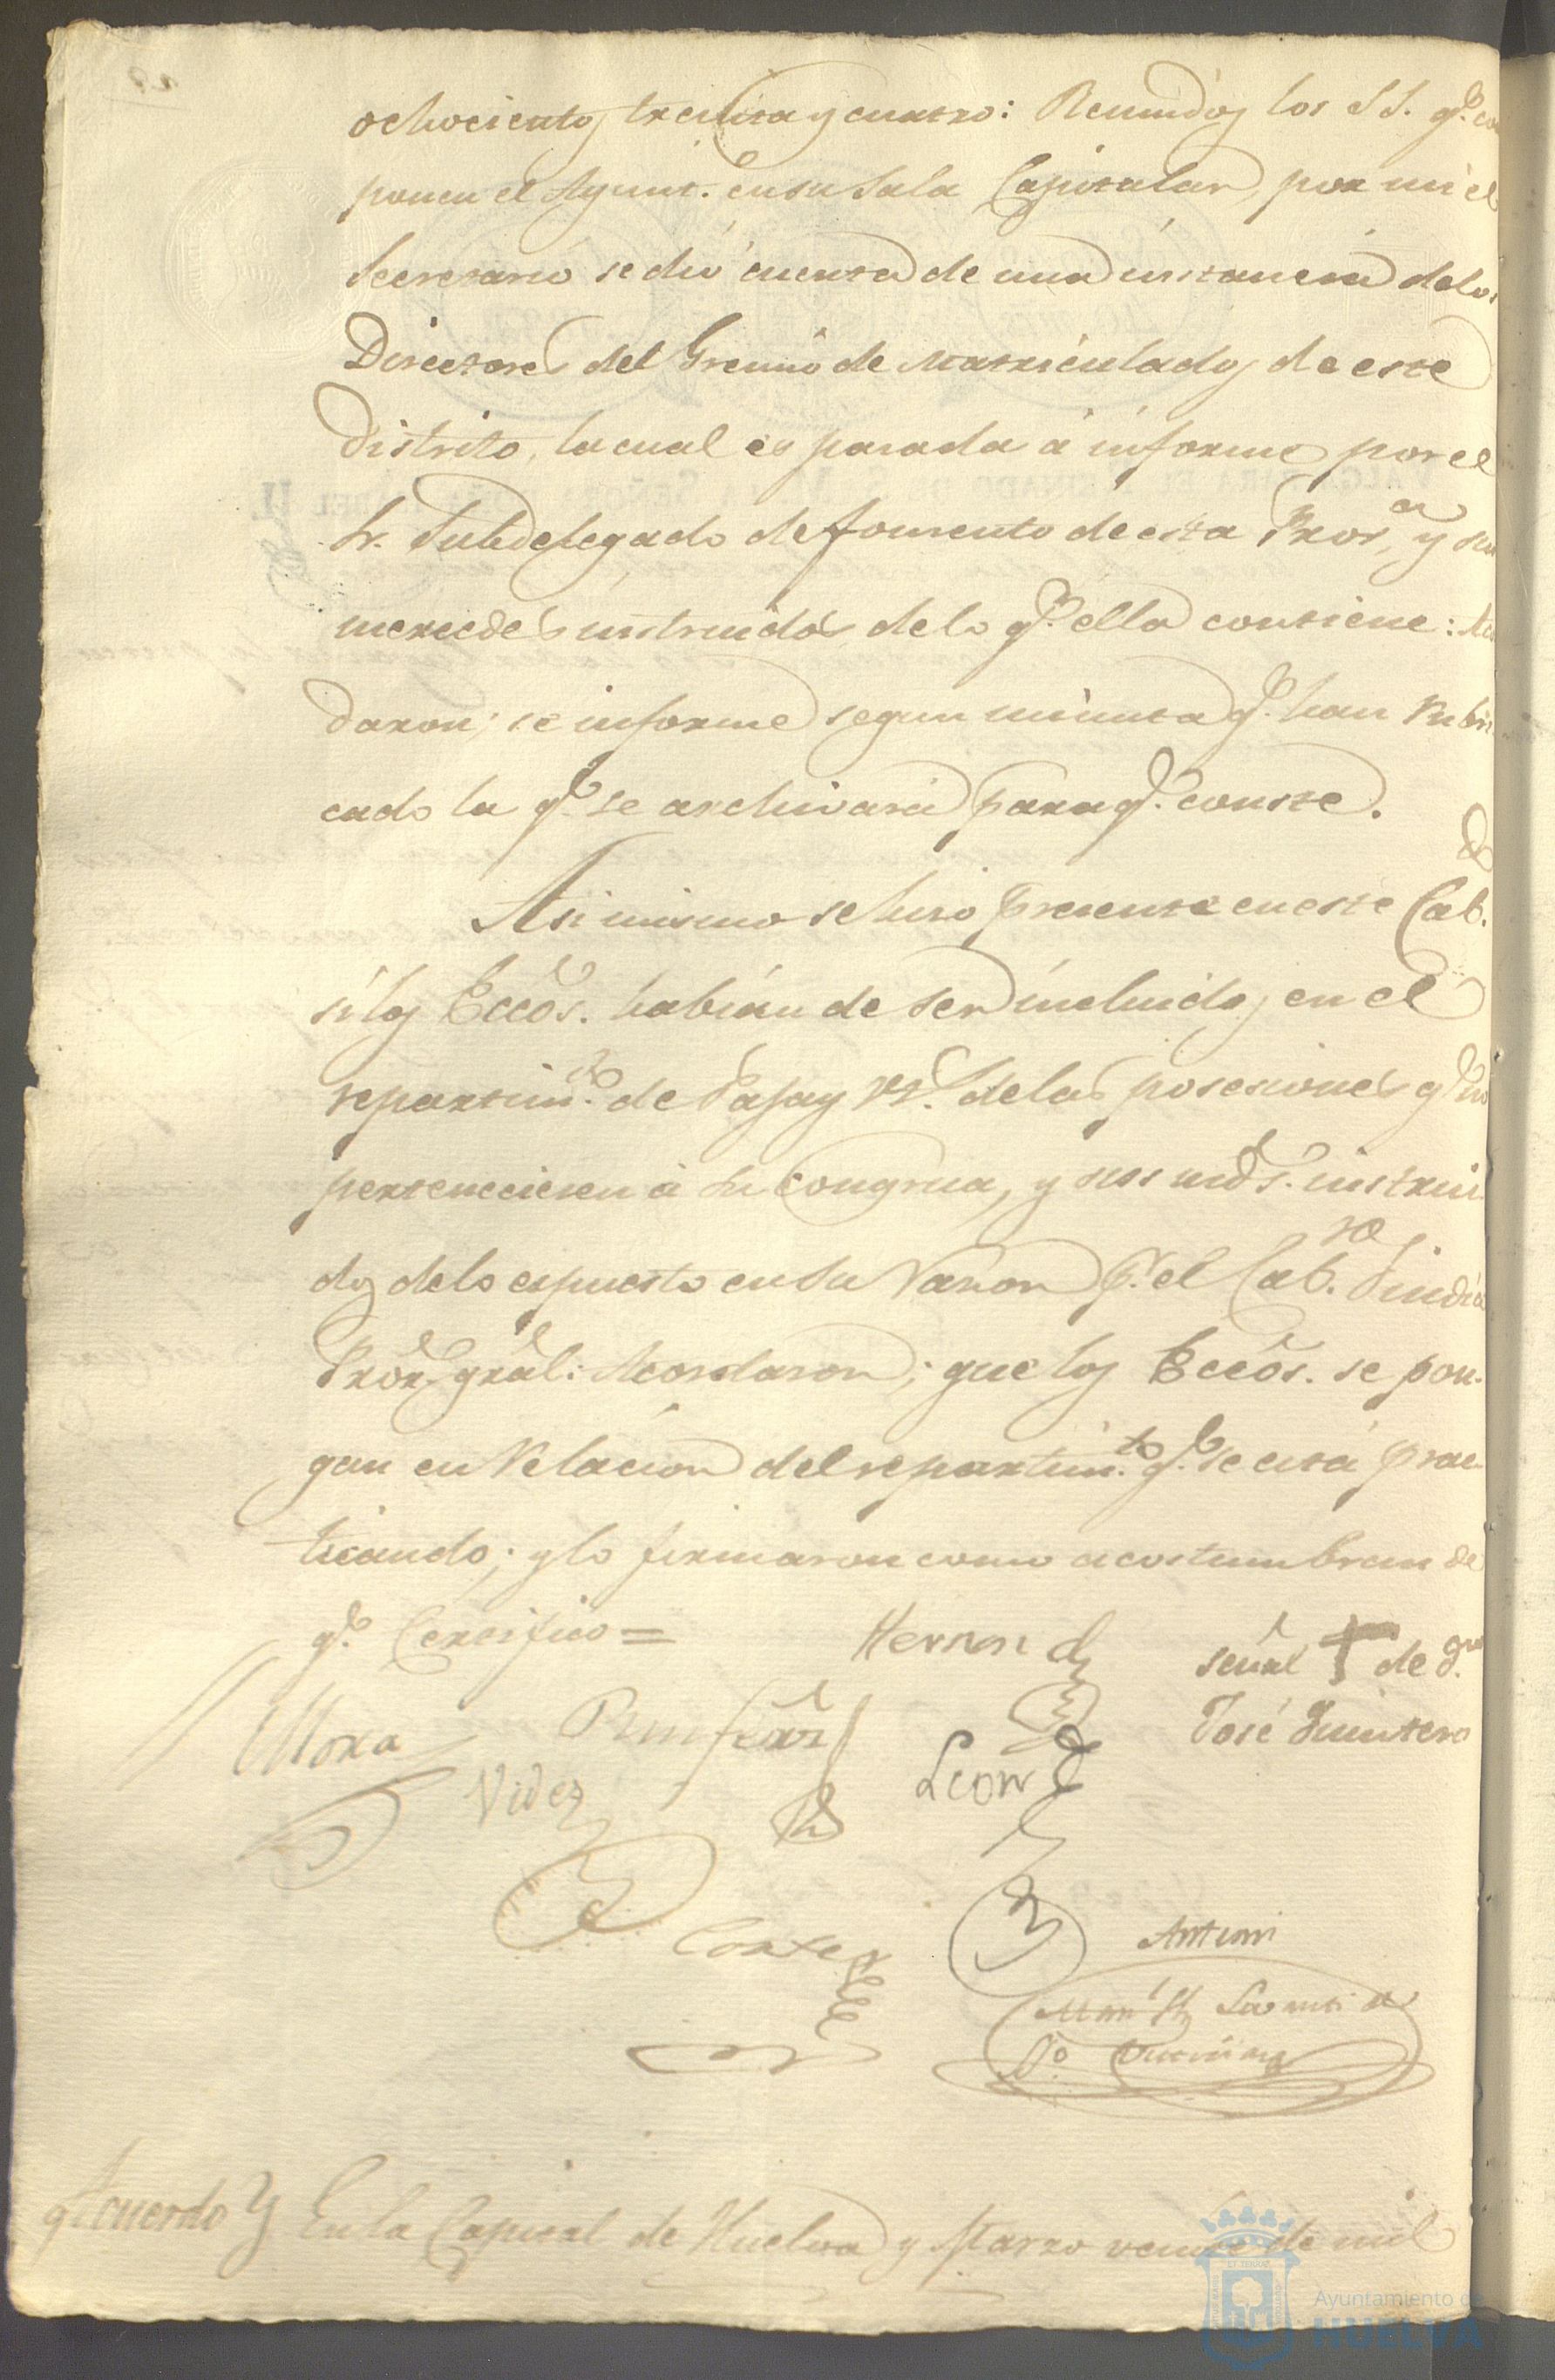 ochocientos treinta y cuatro: Reunidos los SS. q.e com
ponen el Ayunt. en su Sala Capitular, por mi el
Secretario se dió cuenta de una instancia de los
Directores del Gremio de Matriculados de este
Distrito, la cual es pasada á informe por el
Sr. Subdelegado de fomento de esta Prov.a y sus
mercedes instruidos de lo q.e ella contiene: Acor
daron; se informe segun minuta q.e han Rubri
cado la q.e se archivará para q.e conste.
Asi mismo se hizo presente en este Cab.do
si los Eccõs. habian de ser incluidos en el
repartim.to de Paja y de las posesiones q.e no
pertenecieren á su Congrua, y sus mds. instrui
dos de lo espuesto en su razon p.r el Cab.ro Sindico
Prõr grãl: Acordaron; que los Eccõs. se pon-
gan en Relacion del repartim.to q.e se está prac-
ticando; y lo firmaron como acostumbran de
q.e Certifico =
Hernand
señal + de D.n
Mora
José Quintero
Videz
Leon
Cortes
Antuni
Acuerdo En la Capital de Huelva y Marzo veinte de mil
Ayuntamiento de
HUELVA